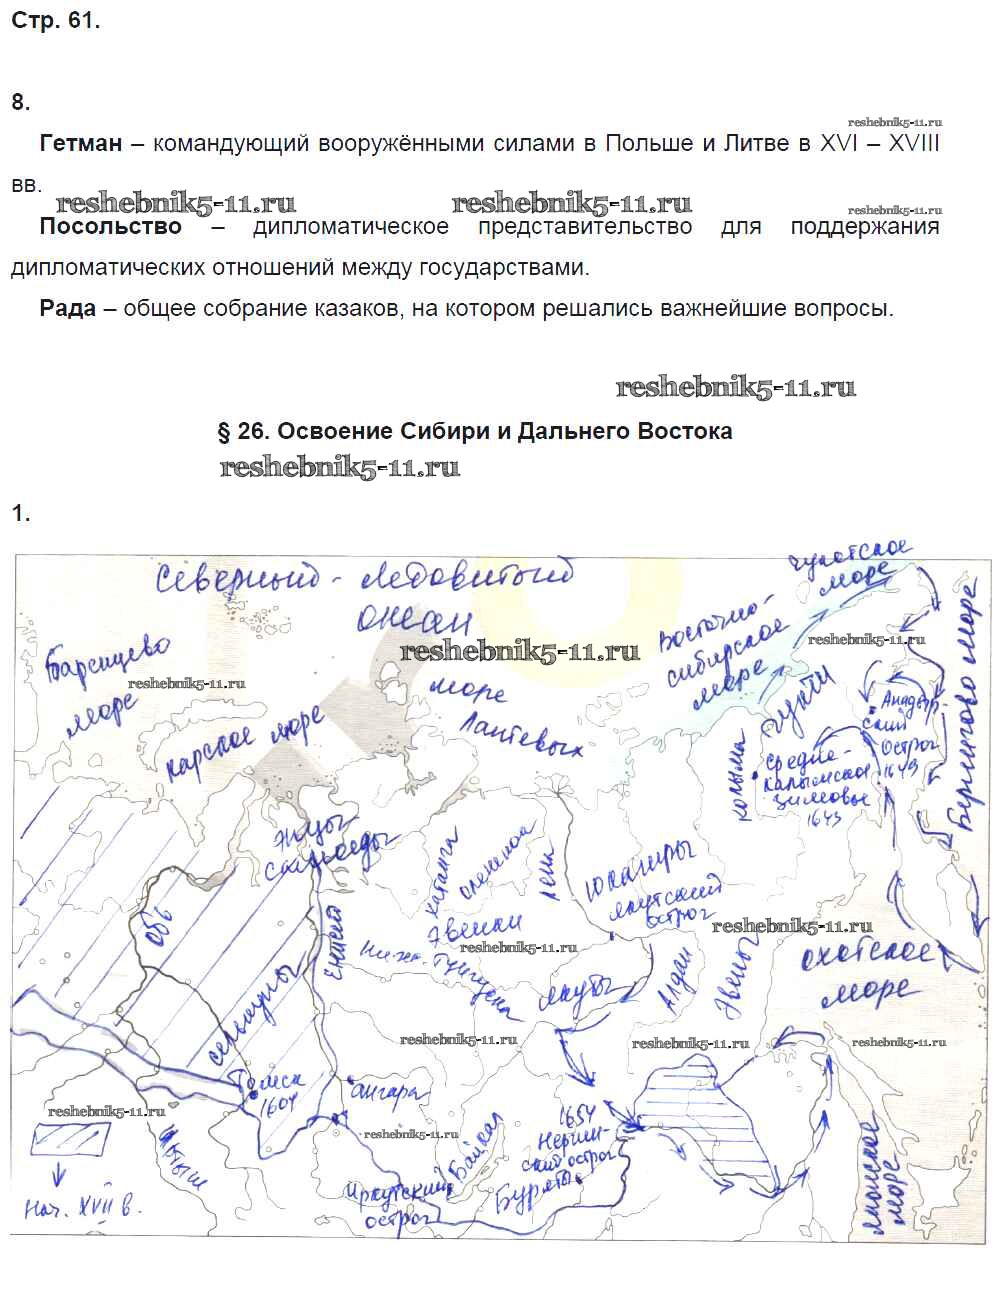 Стр. 61.
8.
reshebnik5-11.ru
Гетман – командующий вооружёнными силами в Польше и Литве в XVI – XVIII
вв.
reshebnik5-11.ru reshebnik5-11.ru reshebnik5-11.ru
Посольство – дипломатическое представительство для поддержания
дипломатических отношений между государствами.
Рада – общее собрание казаков, на котором решались важнейшие вопросы.
reshebnik5-11.ru
§ 26. Освоение Сибири и Дальнего Востока
reshebnik5-11.ru
1.
Северный - Ледовитый
океан
Чукотское
море
Восточно-
сибирское
море
reshebnik5-11.ru
reshebnik5-11.ru
Баренцево
море
reshebnik5-11.ru
карское море
море
Лаптевых
чукчи
Анадыр-
ский
острог
1649
Берингово море
колыма
Средне-
Колымское
зимовье
1643
энцы
самоеды
хатанга
оленек
лена
Юкагиры
якутский
острог
reshebnik5-11.ru
Обь
енисей
Эвенки
reshebnik5-11.ru
Нижн. Тунгуска
якуты
Алдан
Эвены
охотское
море
селькупы
reshebnik5-11.ru
reshebnik5-11.ru
reshebnik5-11.ru
Томск
1604
ангара
reshebnik5-11.ru
reshebnik5-11.ru
1654
Нерчин-
ский острог
Байкал
Буряты
Иркутский
острог
японское
море
нач. XVII в.